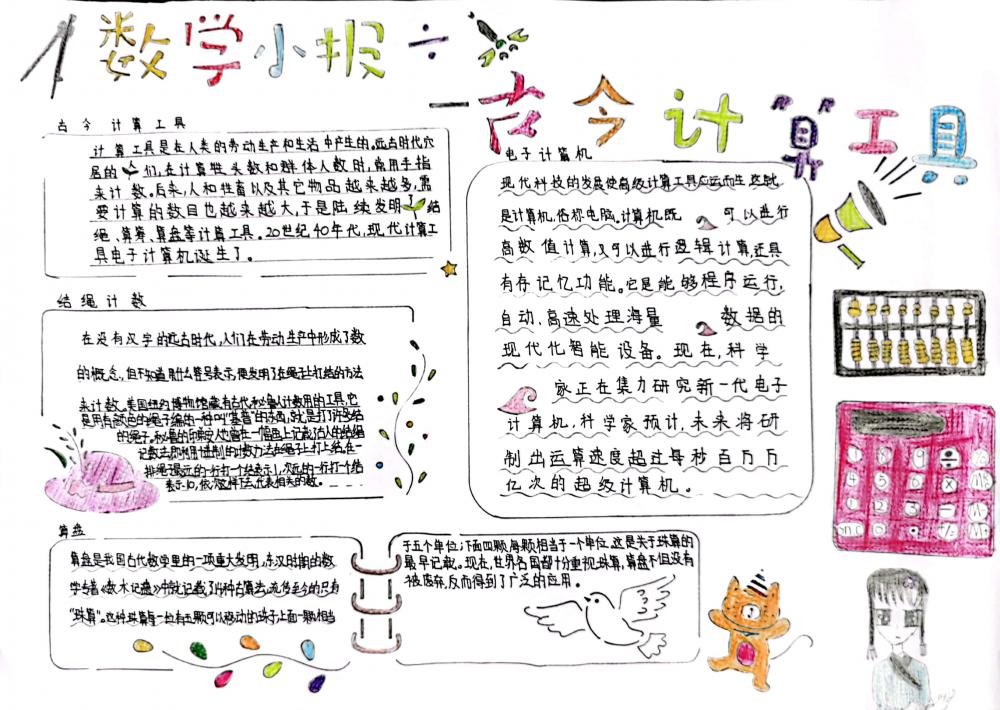 数学小报÷
古今计算工具
古今计算工具
计算工具是在人类的劳动生产和生活中产生的。远古时代穴
居的 们,在计算牲头数和群体人数时,常用手指
来计数。后来,人和牲畜以及其它物品越来越多,需
要计算的数目也越来越大,于是陆续发明了 结
绳、算筹、算盘等计算工具。20世纪40年代,现代计算工
具电子计算机诞生了。
结绳计数
在没有汉字的远古时代,人们在劳动生产中形成了数
的概念,但不知道用什么符号表示,便发明了在绳子上打结的方法
来计数。美国纽约博物馆藏有古代秘鲁人计数用的工具,它
是用有颜色的绳子编的一种叫"基普"的东西,就是打了许多结
的绳子。秘鲁的印
记数法即利用十进制的计数方法在绳子上打上结,在一
排绳子最远的一行打一个结表示1,次远的一行打一个结
表示10,依次这样下去,代表相关的数。
算盘
算盘是我国古代数学里的一项重大发明,东汉时期的数
学专著《数术记遗》中就记载了14种古算法,流传至今的只有
"珠算"。这种珠算每一位有五颗可以移动的珠子,上面一颗相当
于五个单位;下面四颗,每颗相当于一个单位,这是关于珠算的
最早记载。现在,世界各国都十分重视珠算,算盘不但没有
被废弃,反而得到了广泛的应用。
电子计算机
现代科技的发展使高级计算工具应运而生,这就
是计算机,俗称电脑。计算机既 可以进行
高数值计算,又可以进行逻辑计算,还具
有存记忆功能。它是能够程序运行,
自动、高速处理海量 数据的
现代化智能设备。现在,科学
家正在集力研究新一代电子
计算机,科学家预计,未来将研
制出运算速度超过每秒百万万
亿次的超级计算机。